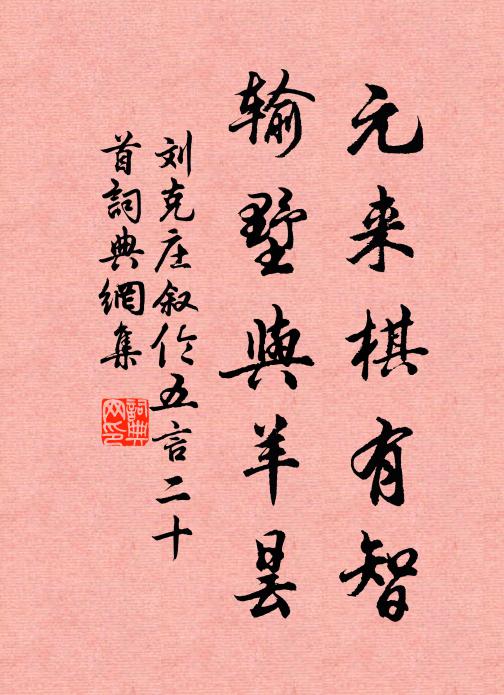 元来棋有智
输墅與羊昙
刘克庄叙伦五言二十
首詞典網集
詞典
网印